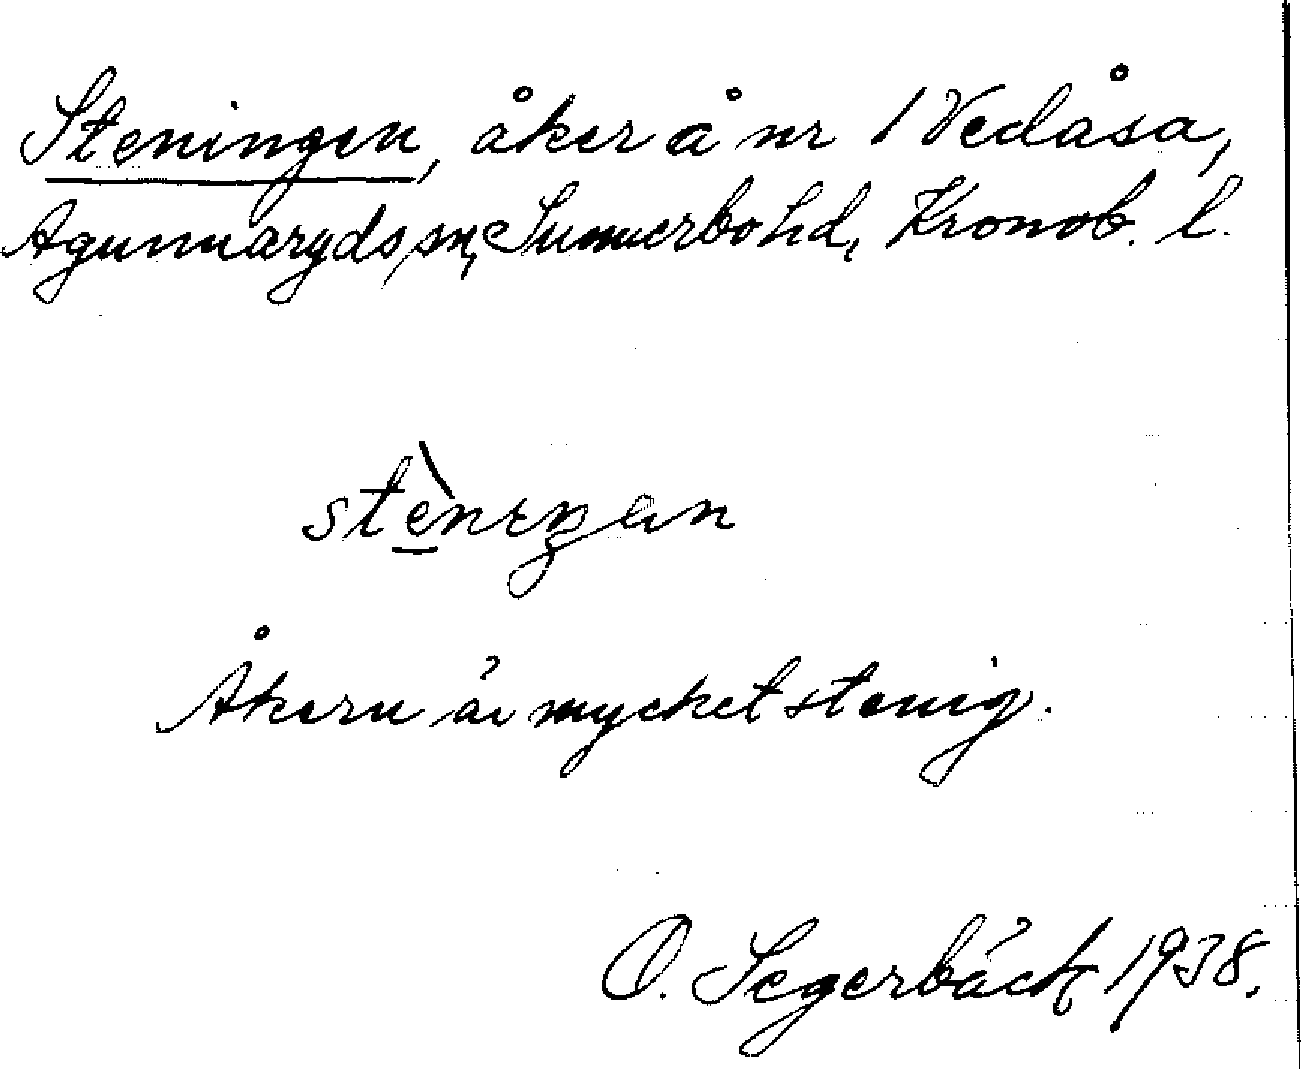 Steningen, åker å nr 1 Vedåsa,
Agunnaryds sn, Sunnerbo hd, Kronob. l.
stènıŋen
Åkern är mycket stenig.
O. Segerbäck 1938.